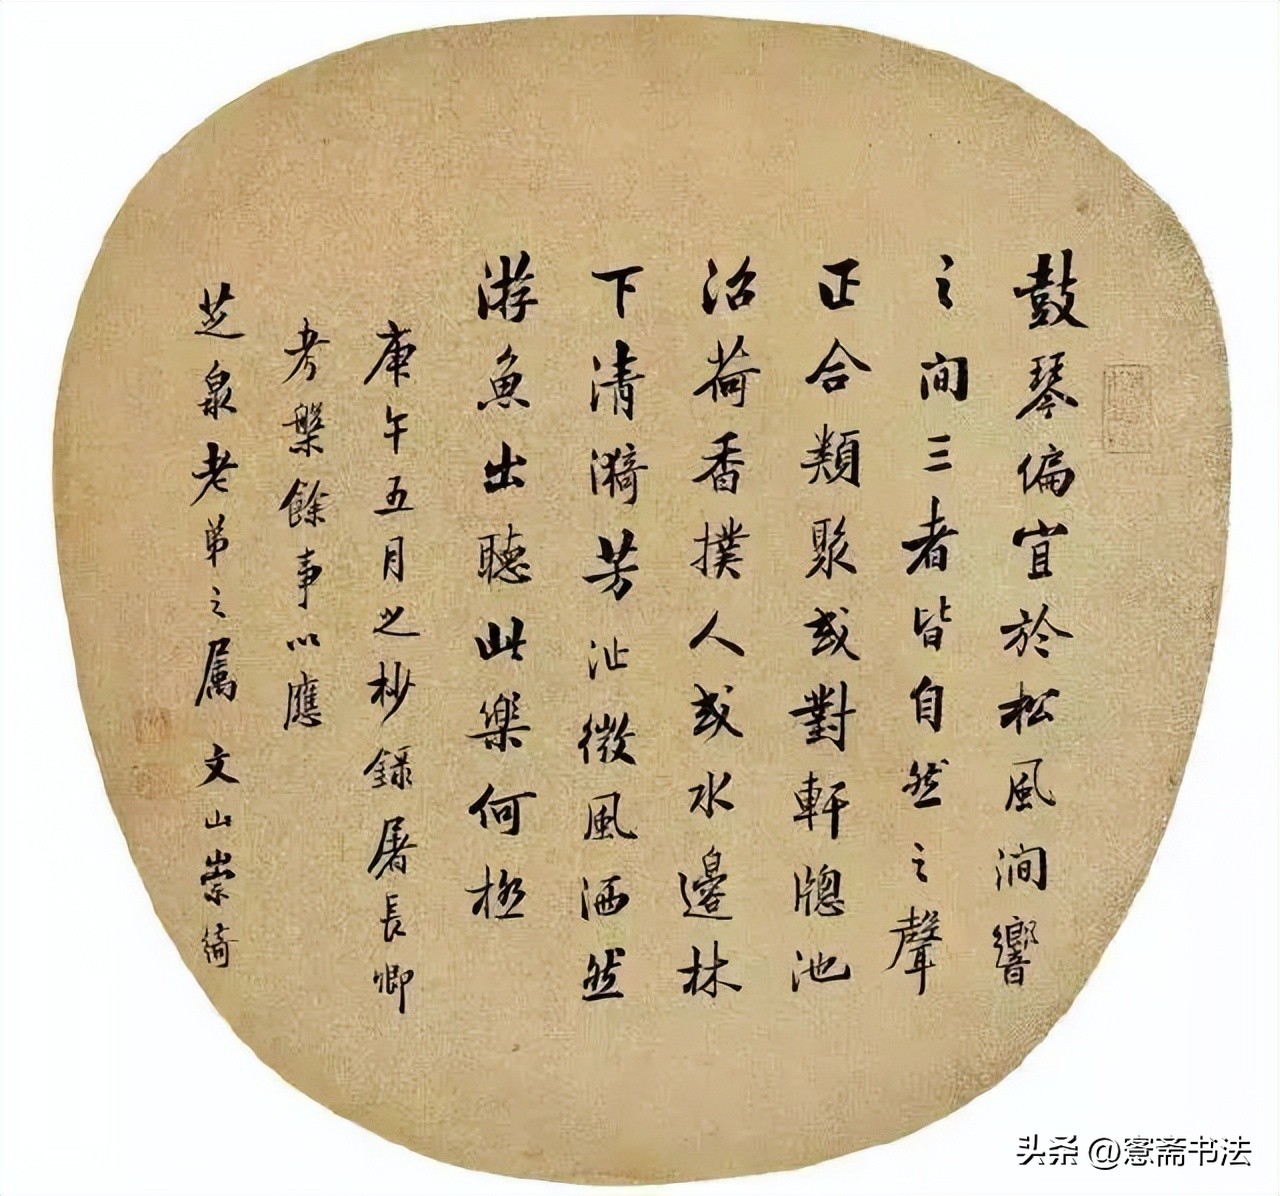 鼓琴偏宜於松風澗響
之间三者皆自然之聲
正合類聚或對軒牕池
沼荷香撲人或水邊林
下清漪芳沚微風洒然
游魚出聽此樂何極
庚午五月之杪錄屠長卿
考槃餘事以應
芝泉老弟之属 文山崇綺
头条 @愙斋书法